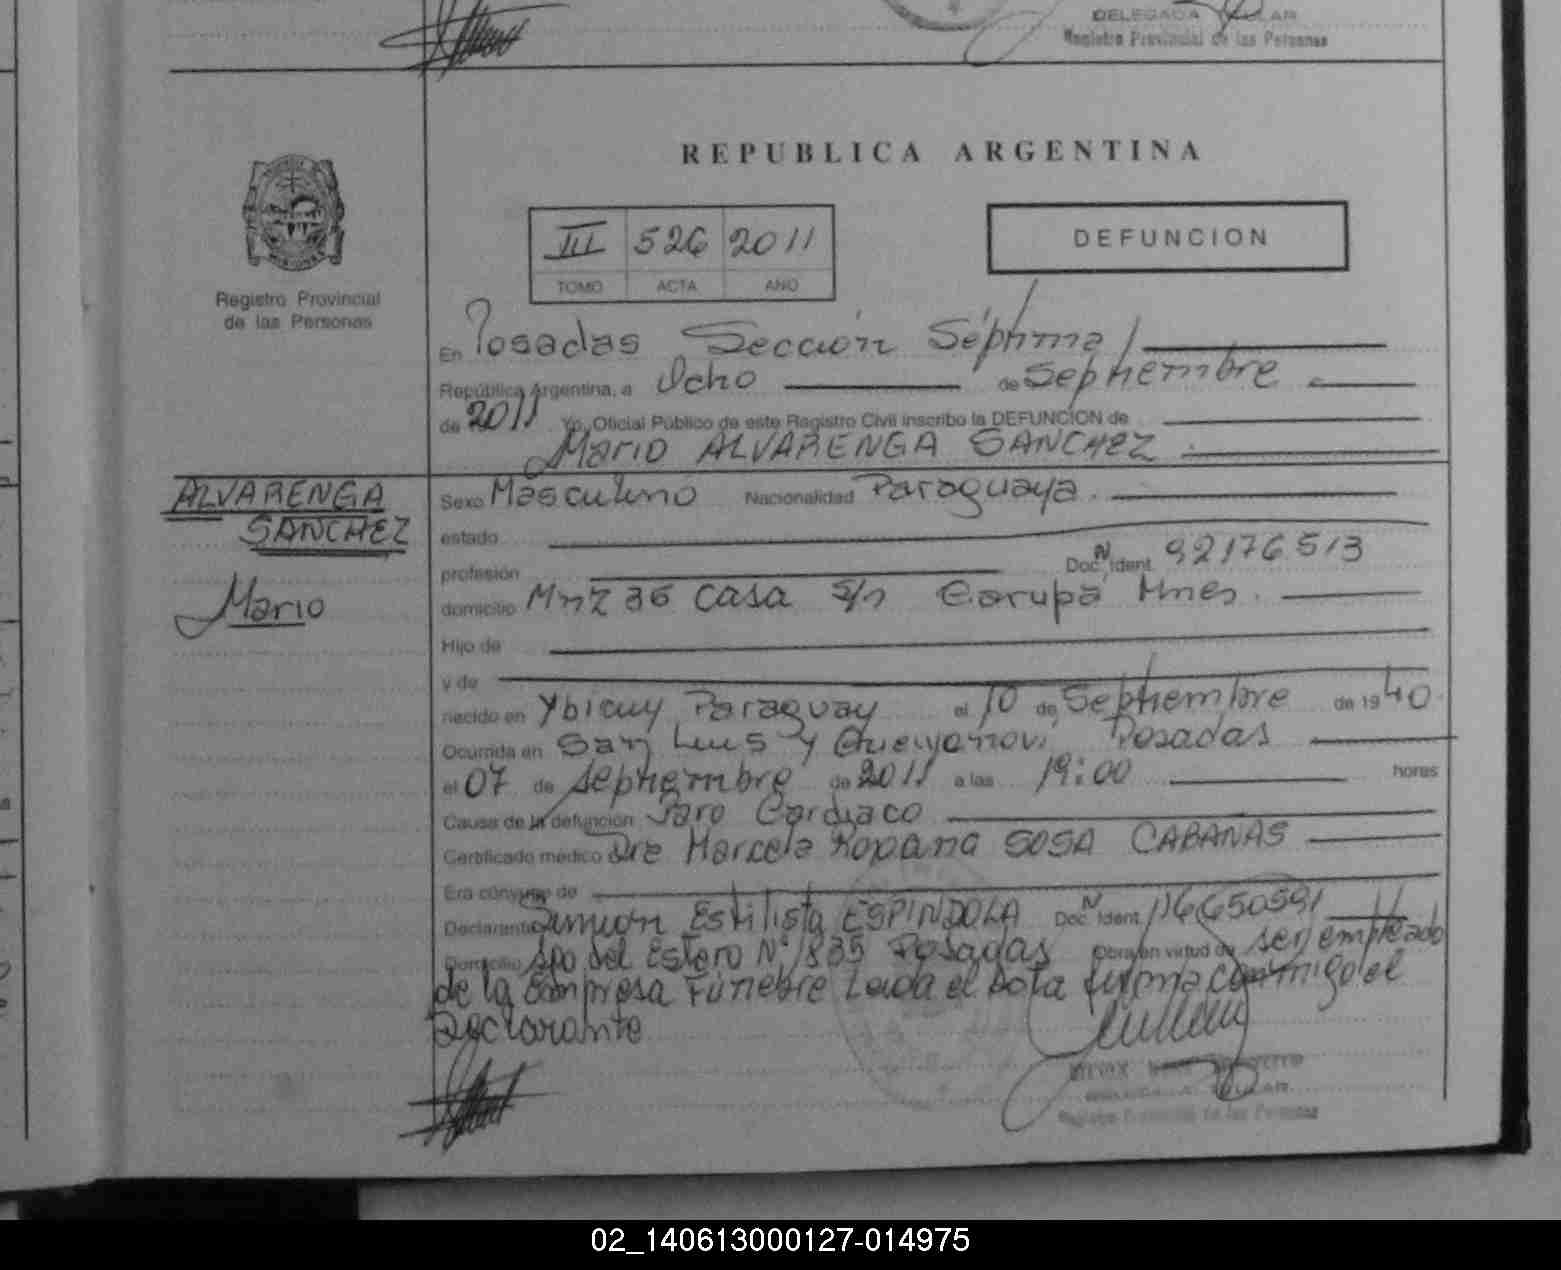 DELEGADA TITULAR
Registro Provincial de las Personas
REPUBLICA ARGENTINA
III 526 2011
TOMO ACTA AÑO
DEFUNCION
Registro Provincial
de las Personas
En Posadas Sección Séptima
República Argentina, a Ocho de Septiembre
de 2011 Yo, Oficial Público de este Registro Civil inscribo la DEFUNCION de
Mario ALVARENGA SANCHEZ
ALVARENGA
SANCHEZ
Mario
Sexo Masculino Nacionalidad Paraguaya.
estado
profesión Doc. N Ident. 92176513
domicilio Mnz 36 casa s/n Garupá Mnes.
Hijo de
y de
nacido en Ybicuy Paraguay el 10 de Septiembre de 1940.
Ocurrida en San Luis y Posadas
el 07 de Septiembre de 2011 a las 19:00 horas
Causa de la defunción Paro Cardiaco
Certificado médico Dra Marcela Roxana SOSA CABANAS
Era cónyuge de
Declarante Estilista ESPINDOLA Doc. N Ident. 16650591
Domicilio Sgo del Estero N° 1835 Posadas Obra en virtud de ser empleado
de la Empresa Fúnebre Leida el Acta firma conmigo el
Declarante
Registro Provincial de las Personas
02_140613000127-014975